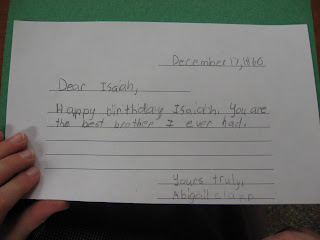 December 17, 1860
Dear Isaiah,
Happy birthday Isaiah. You are
the best brother I ever had.
Yours truly,
Abigail